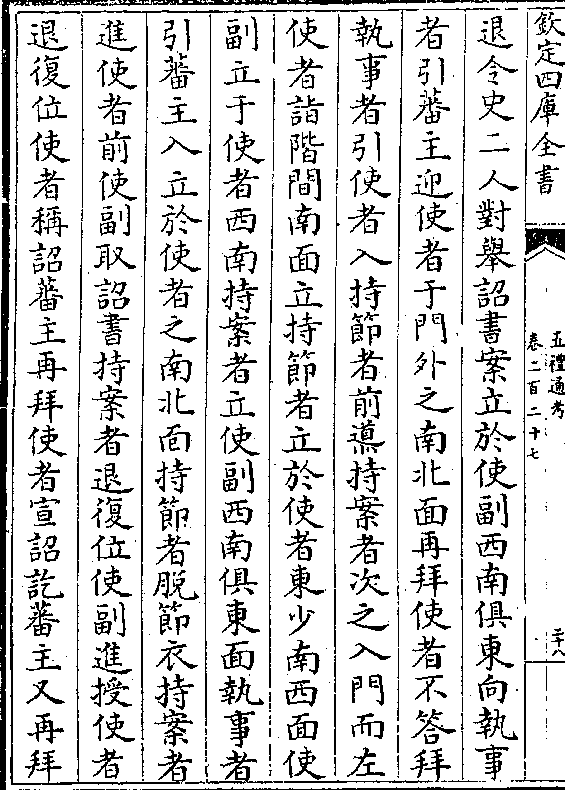 欽定四庫全書
五禮通考
卷二百二十七
二十八
退令史二人對舉詔書案立於使副西南俱東向執事
者引蕃主迎使者于門外之南北面再拜使者不答拜
執事者引使者入持節者前導持案者次之入門而左
使者詣階間南面立持節者立於使者東少南西面使
副立于使者西南持案者立使副西南俱東面執事者
引蕃主入立於使者之南北面持節者脫節衣持案者
進使者前使副取詔書持案者退復位使副進授使者
退復位使者稱詔蕃主再拜使者宣詔訖蕃主又再拜